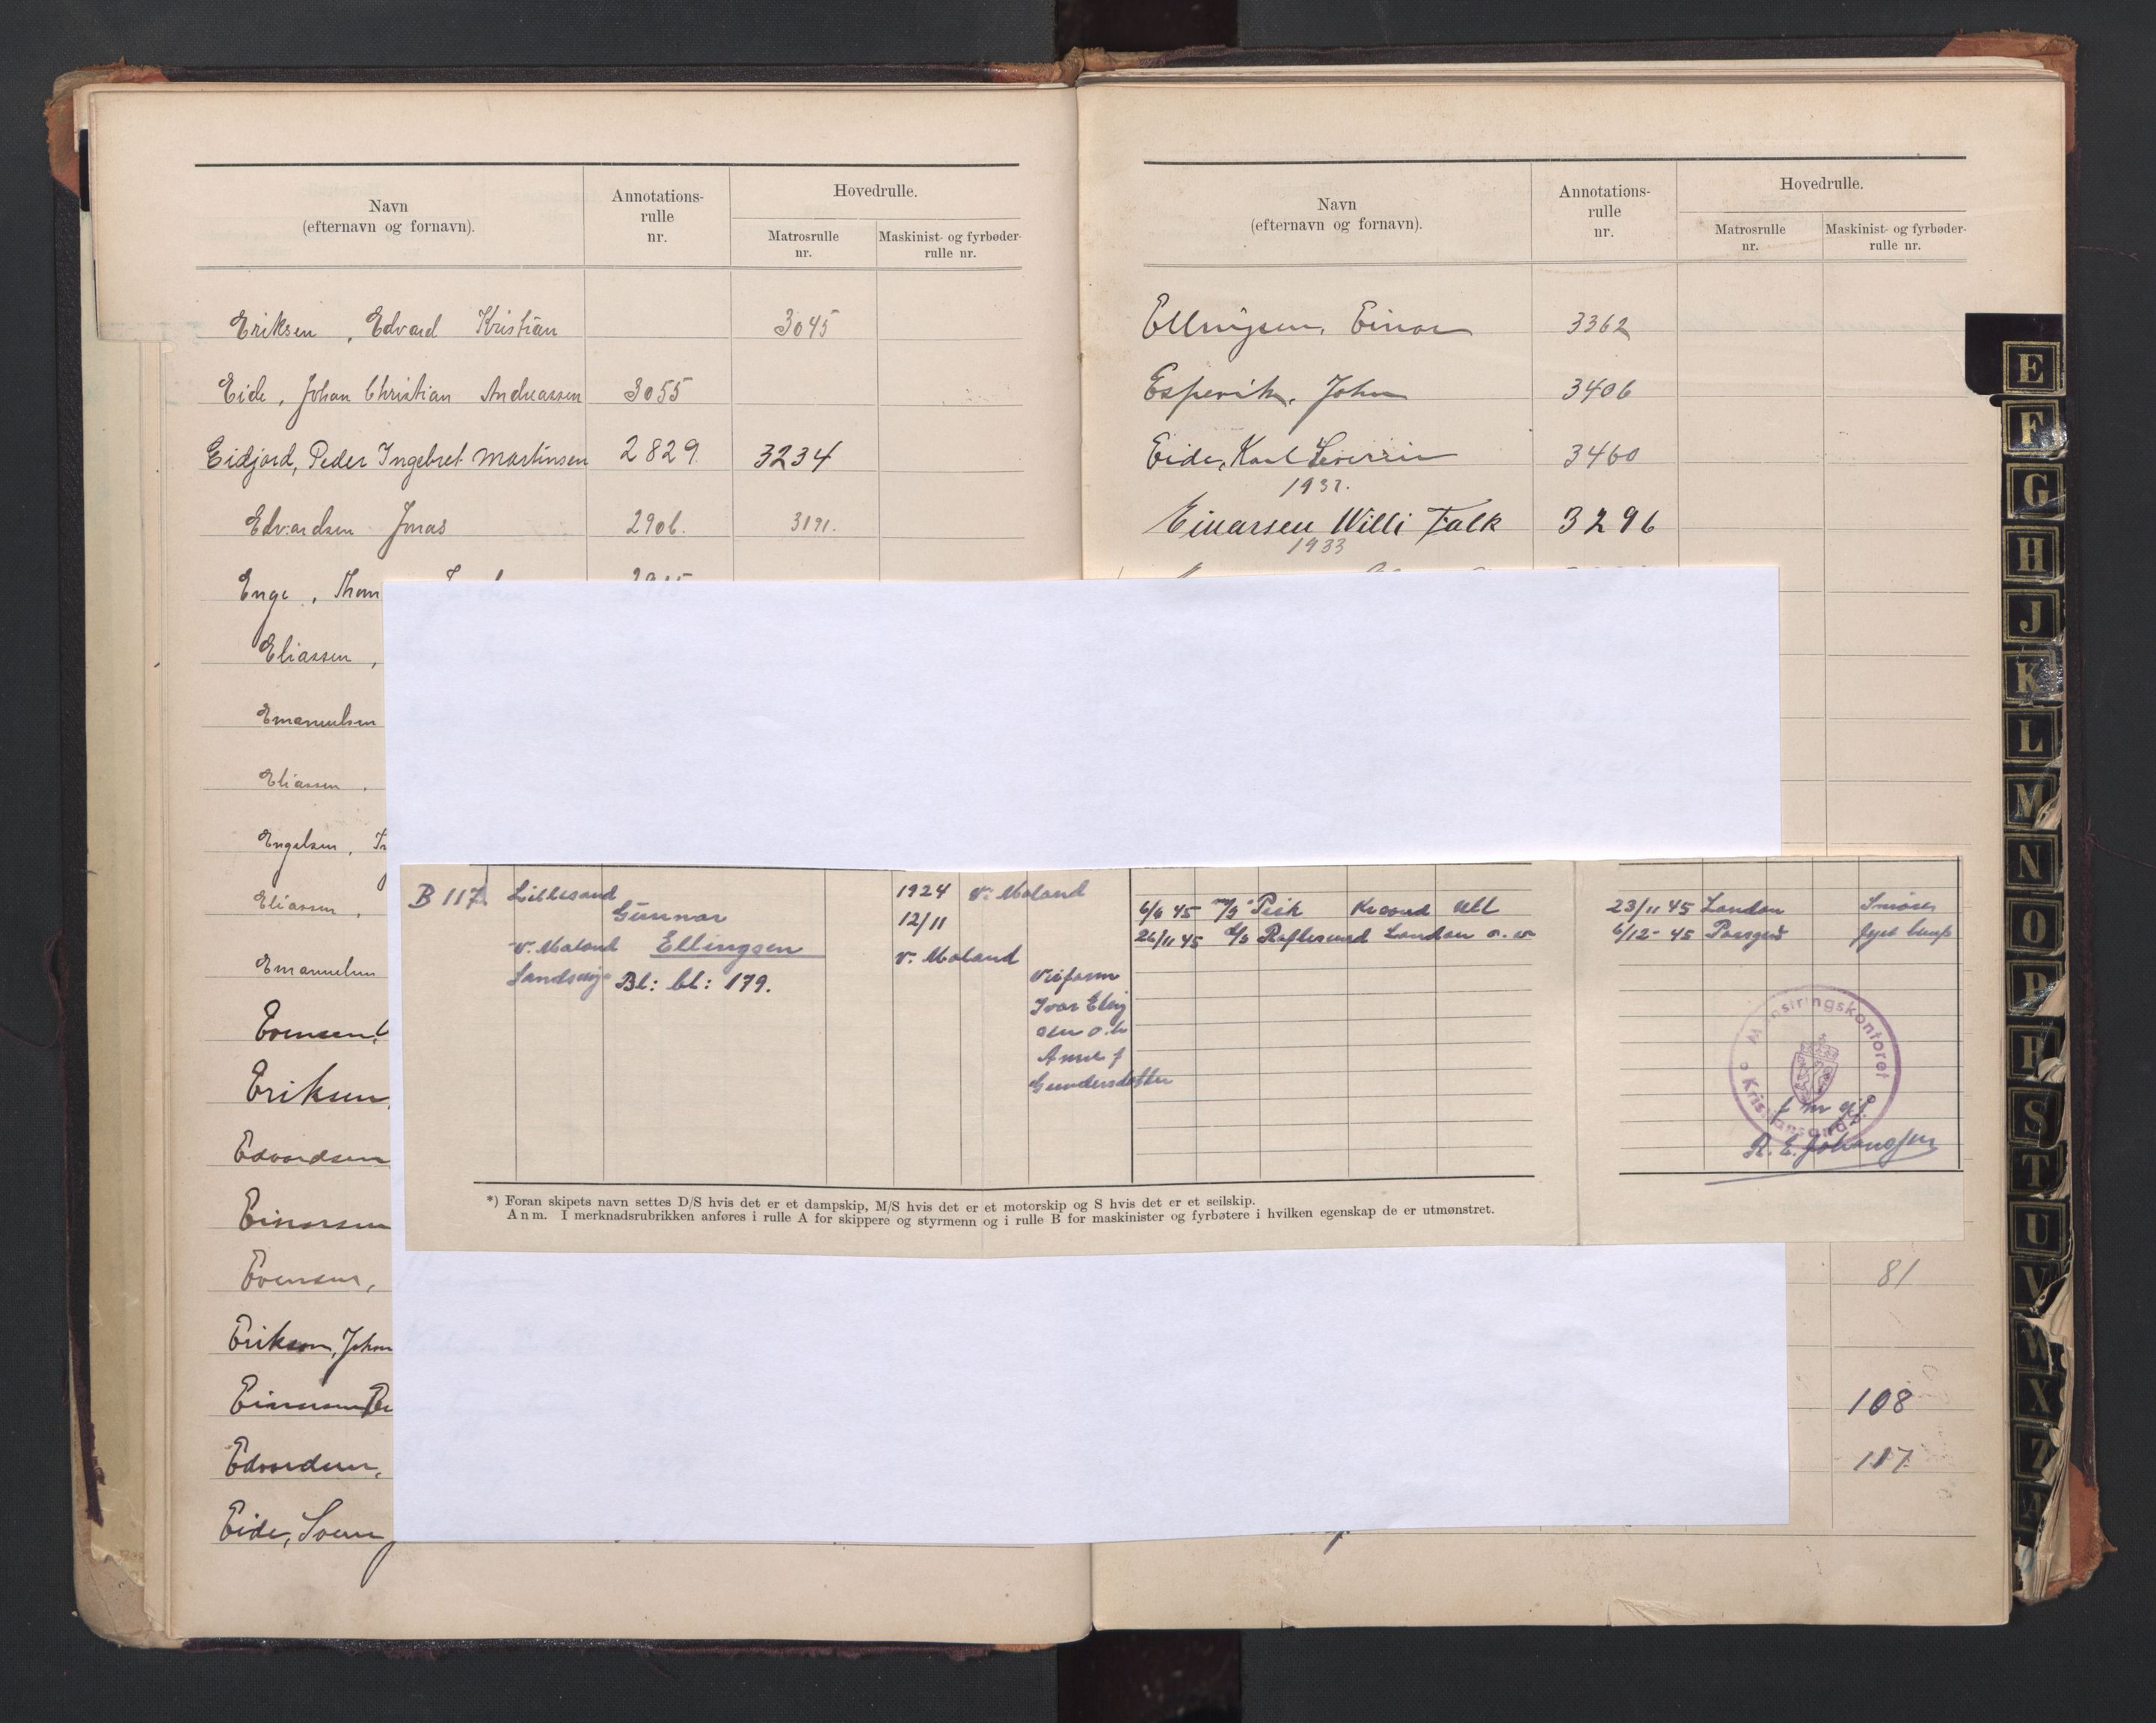 Navn
(efternavn og fornavn).
Annotations-
rulle
nr.
Hovedrulle.
Matrosrulle
nr.
Maskinist- og fyrbøder-
rulle nr.
Eriksen, Edvard Kristian 3045
Eide, Johan Christian Andreassen 3055
Eidjord, Peder Ingebret Martinsen 2829. 3234
Edvardsen Jonas 2906. 3191.
Enge, Thom
Eliassen,
Emanuelsen
Eliassen,
Engelsen,
Eliassen,
Emanuelsen
Evensen,
Eriksen,
Edvardsen
Einarsen
Evensen,
Erikson, John
Einarsen
Edvardsen,
Eide, Svenn
Navn
(efternavn og fornavn).
Annotations-
rulle
nr.
Hovedrulle.
Matrosrulle
nr.
Maskinist- og fyrbøder-
rulle nr.
Ellingsen, Einar 3362
Espevik, John 3406
Eide, Karl Severin 3460
1932.
Einarsen Willi Falk 3296
1933
81
108
117
B 117. Lillesand
Gunnar
V. Moland Ellingsen
Landsvig Bl: bl: 179.
1924 V. Moland
12/11
V. Moland
Ivar Elling
sen o. h
Anne f
Gundersdatter
6/6 45 M/S Pisk Krsand
26/11 45 Raftesund London
23/11 45 London
6/12- 45 Porsgr
*) Foran skipets navn settes D/S hvis det er et dampskip, M/S hvis det er et motorskip og S hvis det er et seilskip.
Anm. I merknadsrubrikken anføres i rulle A for skippere og styrmenn og i rulle B for maskinister og fyrbøtere i hvilken egenskap de er utmønstret.
Mønstringskontoret
Kristiansand
R. E. Johansen
E
F
G
H
J
K
L
M
N
O
P
R
S
T
U
V
W
X
Z